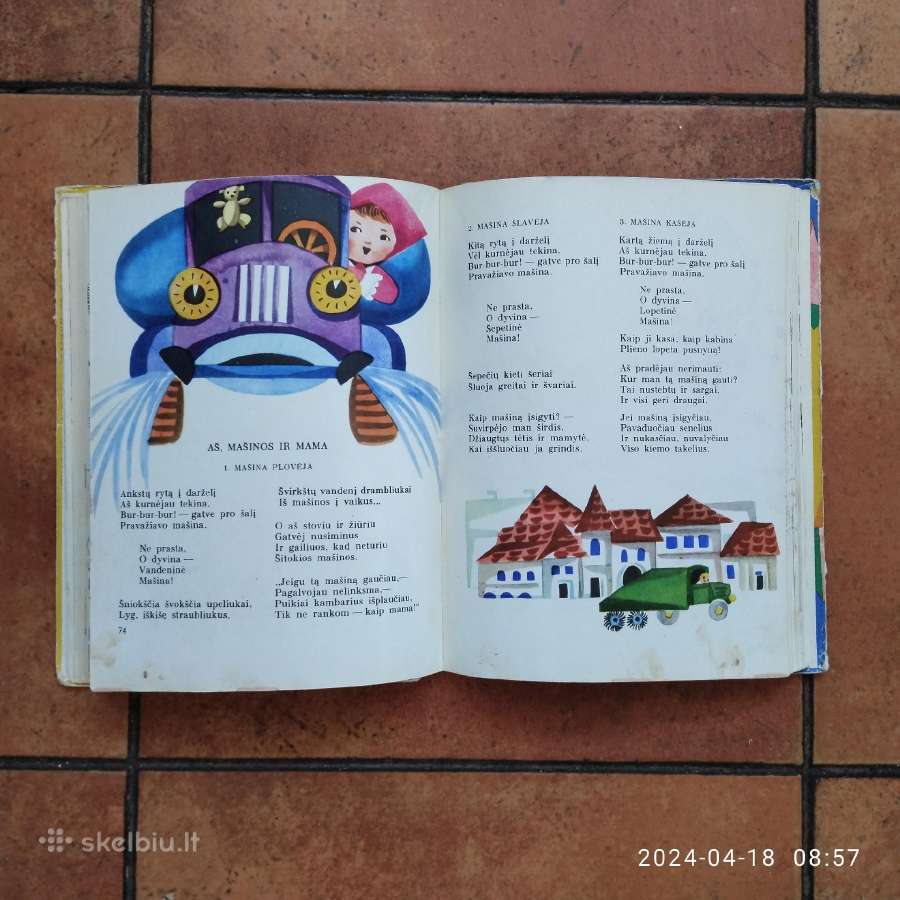 AŠ, MAŠINOS IR MAMA
1. MAŠINA PLOVĖJA
Ankstų rytą į darželį
Aš kurnėjau tekina.
Bur-bur-bur! — gatve pro šalį
Pravažiavo mašina.
Ne prasta,
O dyvina —
Vandeninė
Mašina!
Šniokščia švokščia upeliukai,
Lyg, iškišę straubliukus,
74
Švirkštų vandenį drambliukai
Iš mašinos į vaikus...
O aš stoviu ir žiūriu
Gatvėj nusiminus
Ir gailiuos, kad neturiu
Šitokios mašinos.
„Jeigu tą mašiną gaučiau,—
Pagalvojau nelinksma,—
Puikiai kambarius išplaučiau,
Tik ne rankom — kaip mama!"
2. MAŠINA ŠLAVĖJA
Kitą rytą į darželį
Vėl kurnėjau tekina.
Bur-bur-bur! — gatve pro šalį
Pravažiavo mašina.
Ne prasta,
O dyvina —
Šepetinė
Mašina!
Šepečių kieti šeriai
Šluoja greitai ir švariai.
Kaip mašiną įsigyti? —
Suvirpėjo man širdis.
Džiaugtųs tėtis ir mamytė,
Kai iššluočiau ja grindis.
3. MAŠINA KASĖJA
Kartą žiemą į darželį
Aš kurnėjau tekina.
Bur-bur-bur! — gatve pro šalį
Pravažiavo mašina.
Ne prasta,
O dyvina —
Lopetinė
Mašina!
Kaip ji kasa, kaip kabina
Plieno lopeta pusnyną!
Aš pradėjau nerimauti:
Kur man tą mašiną gauti?
Tai nustebtų ir sargai,
Ir visi geri draugai.
Jei mašiną įsigyčiau,
Pavaduočiau senelius
Ir nukasčiau, nuvalyčiau
Viso kiemo takelius.
skelbiu.lt
2024-04-18 08:57